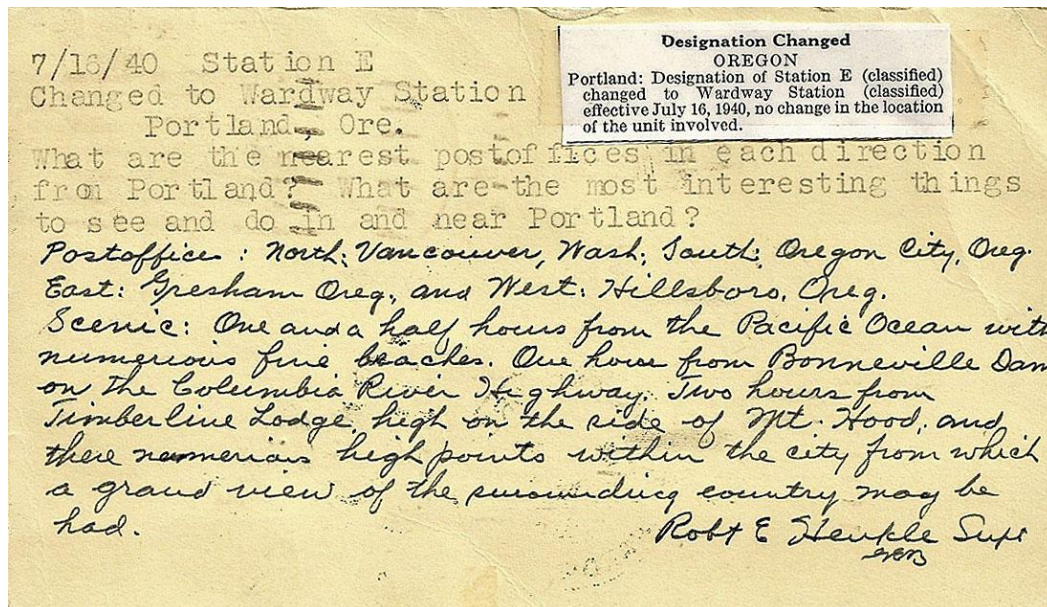 Designation Changed
OREGON
Portland: Designation of Station E (classified)
changed to Wardway Station (classified)
effective July 16, 1940, no change in the location
of the unit involved.
7/16/40 Station E
Changed to Wardway Station
Portland, Ore.
What are the nearest postoffices in each direction
from Portland? What are the most interesting things
to see and do in and near Portland?
Postoffices: North: Vancouver, Wash; South: Oregon City, Oreg.
East: Gresham Oreg., and West: Hillsboro, Oreg.
Scenic: One and a half hours from the Pacific Ocean with
numerious fine beaches. One hour from Bonneville Dam
on the Columbia River Highway. Two hours from
Timberline Lodge, high on the side of Mt. Hood, and
there numerious high points within the city from which
a grand view of the surounding country may be
had.
Robt E Henkle Supt